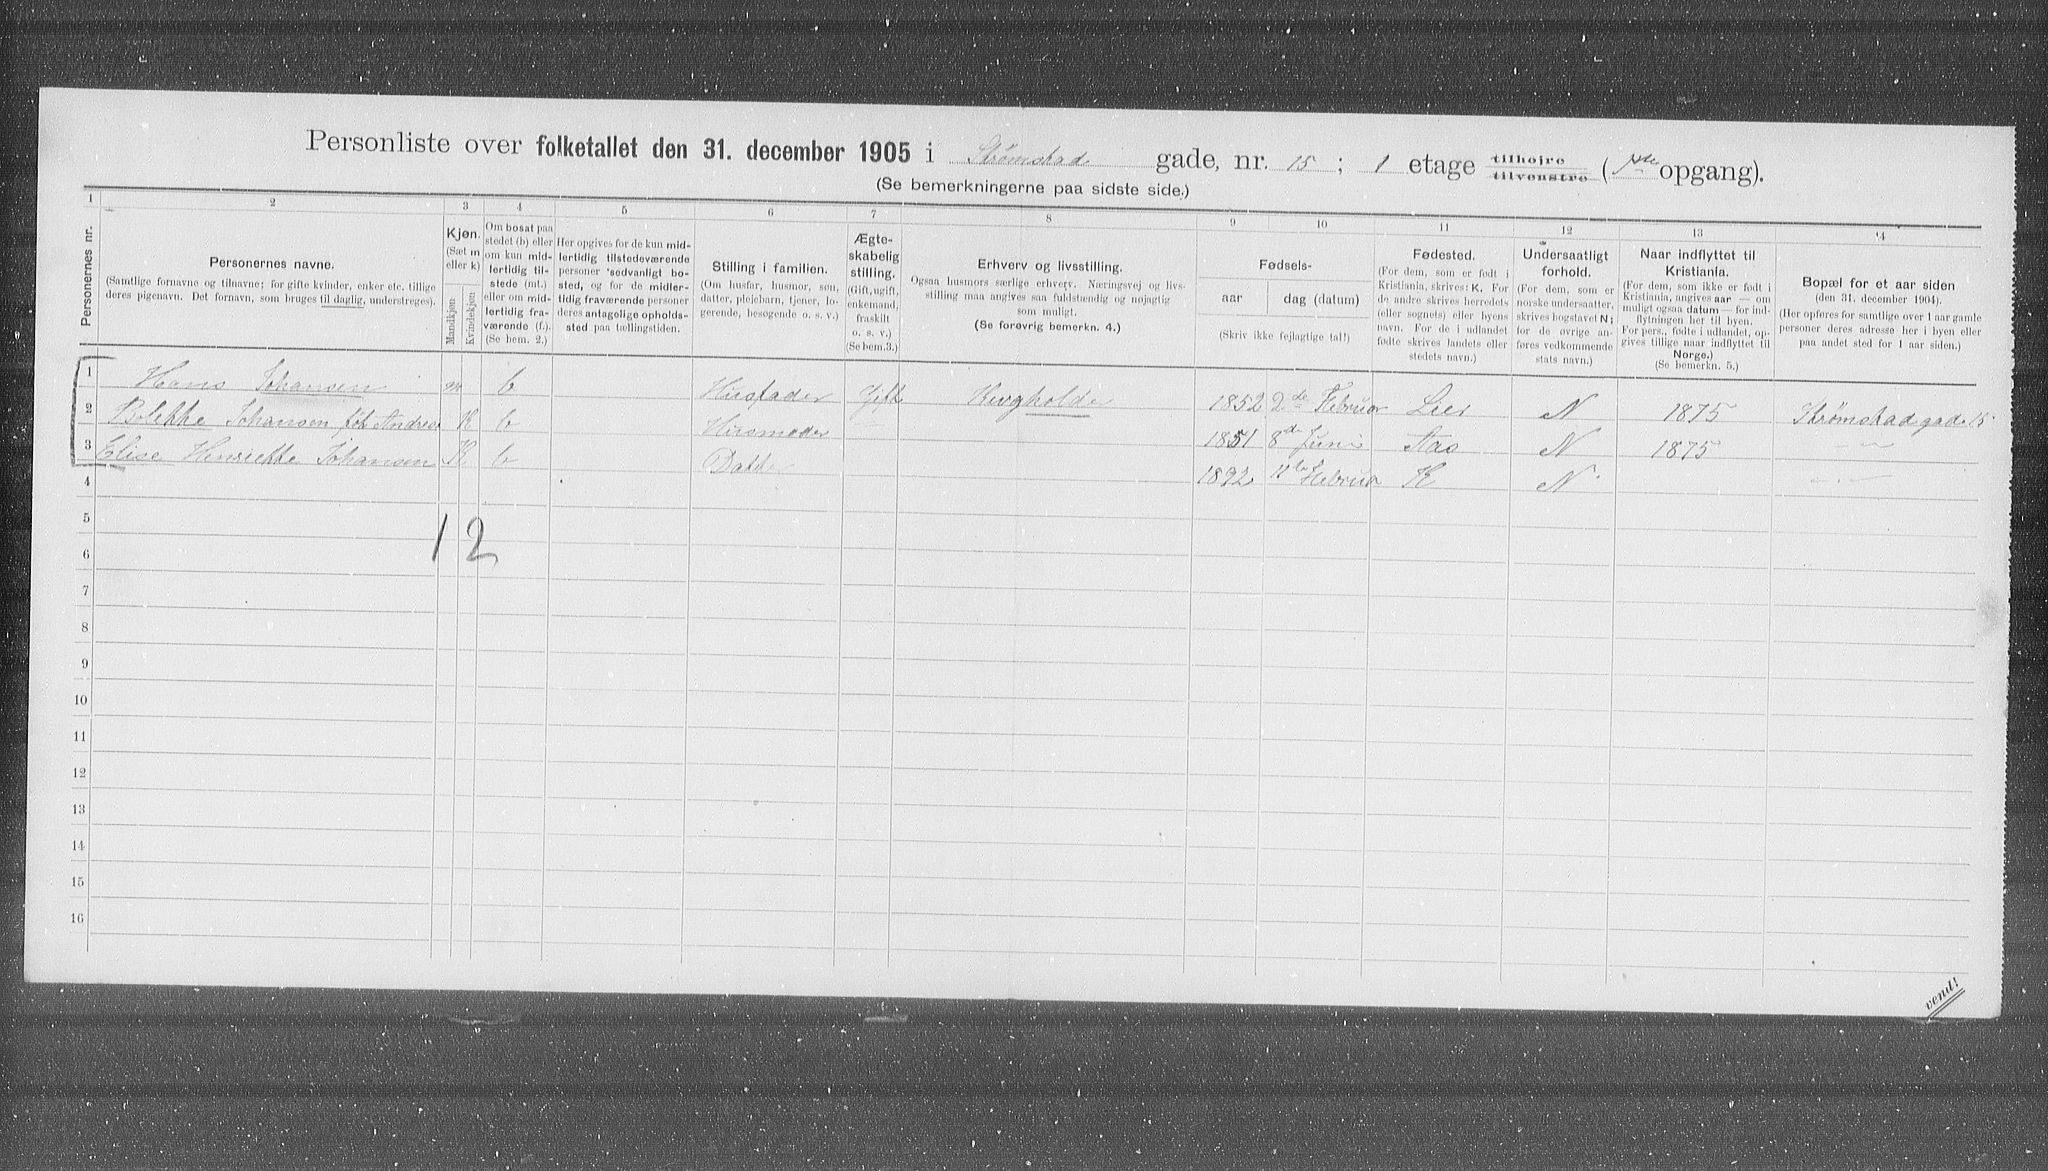 Personliste over folketallet den 31. december 1905 i Strømstad gade, nr. 15 ; 1 etage tilhøjre tilvenstre ( opgang).
(Se bemerkningerne paa sidste side.)
1 2 3 4 5 6 7 8 9 10 11 12 13 14
Personernes nr.
Personernes navne.
(Samtlige fornavne og tilnavne; for gifte kvinder, enker etc. tillige
deres pigenavn. Det fornavn, som bruges til daglig, understreges).
Kjøn.
(Sæt m
eller k)
Mandkjøn
Kvindekjøn
Om bosat paa
stedet (b) eller
om kun mid-
lertidig til-
stede (mt.)
eller om mid-
lertidig fra-
værende (f.).
(Se bem. 2.)
Her opgives for de kun mid-
lertidig tilstedeværende
personer sedvanligt bo-
sted, og for de midler-
tidig fraværende personer
deres antagelige opholds-
sted paa tællingstiden.
Stilling i familien.
(Om husfar, husmor, søn,
datter, plejebarn, tjener, lo-
gerende, besøgende o. s. v.)
Ægte-
skabelig
stilling.
(Gift, ugift,
enkemand,
fraskilt
o. s. v.)
(Se bem.3.)
Erhverv og livsstilling.
Ogsaa husmors særlige erhverv. Næringsvej og livs-
stilling maa angives saa fuldstændig og nøjagtig
som muligt.
(Se forøvrig bemerkn. 4.)
Fødsels-
aar
dag (datum)
(Skriv ikke fejlagtige tal!)
Fødested.
(For dem, som er født i
Kristiania, skrives: K. For
de andre skrives herredets
(eller sognets) eller byens
navn. For de i udlandet
fødte skrives landets eller
stedets navn.)
Undersaatligt
forhold.
(For dem, som er
norske undersaatter,
skrives bogstavet N;
for de øvrige an-
føres vedkommende
stats navn.)
Naar indflyttet til
Kristiania.
(For dem, som ikke er født i
Kristiania, angives aar — om
muligt ogsaa datum — for ind-
flytningen her til byen.
For pers., fødte i udlandet, op-
gives tillige naar indflyttet til
Norge.)
(Se bemerkn. 5.)
Bopæl for et aar siden
(den 31. december 1904).
(Her opføres for samtlige over 1 aar gamle
personer deres adresse her i byen eller
paa andet sted for 1 aar siden.)
1 Hans Johansen m b Husfader Gift 1852 2de Februar Lier N 1875 Strømstadgade 15
2 Johansen føt Andrea K b Husmoder 1851 8d Juni Aas N 1875 — " —
3 Elise Henriette Johansen K b 1892 Februar K N — " —
4
5
1 2
6
7
8
9
10
11
12
13
14
15
16
vend!